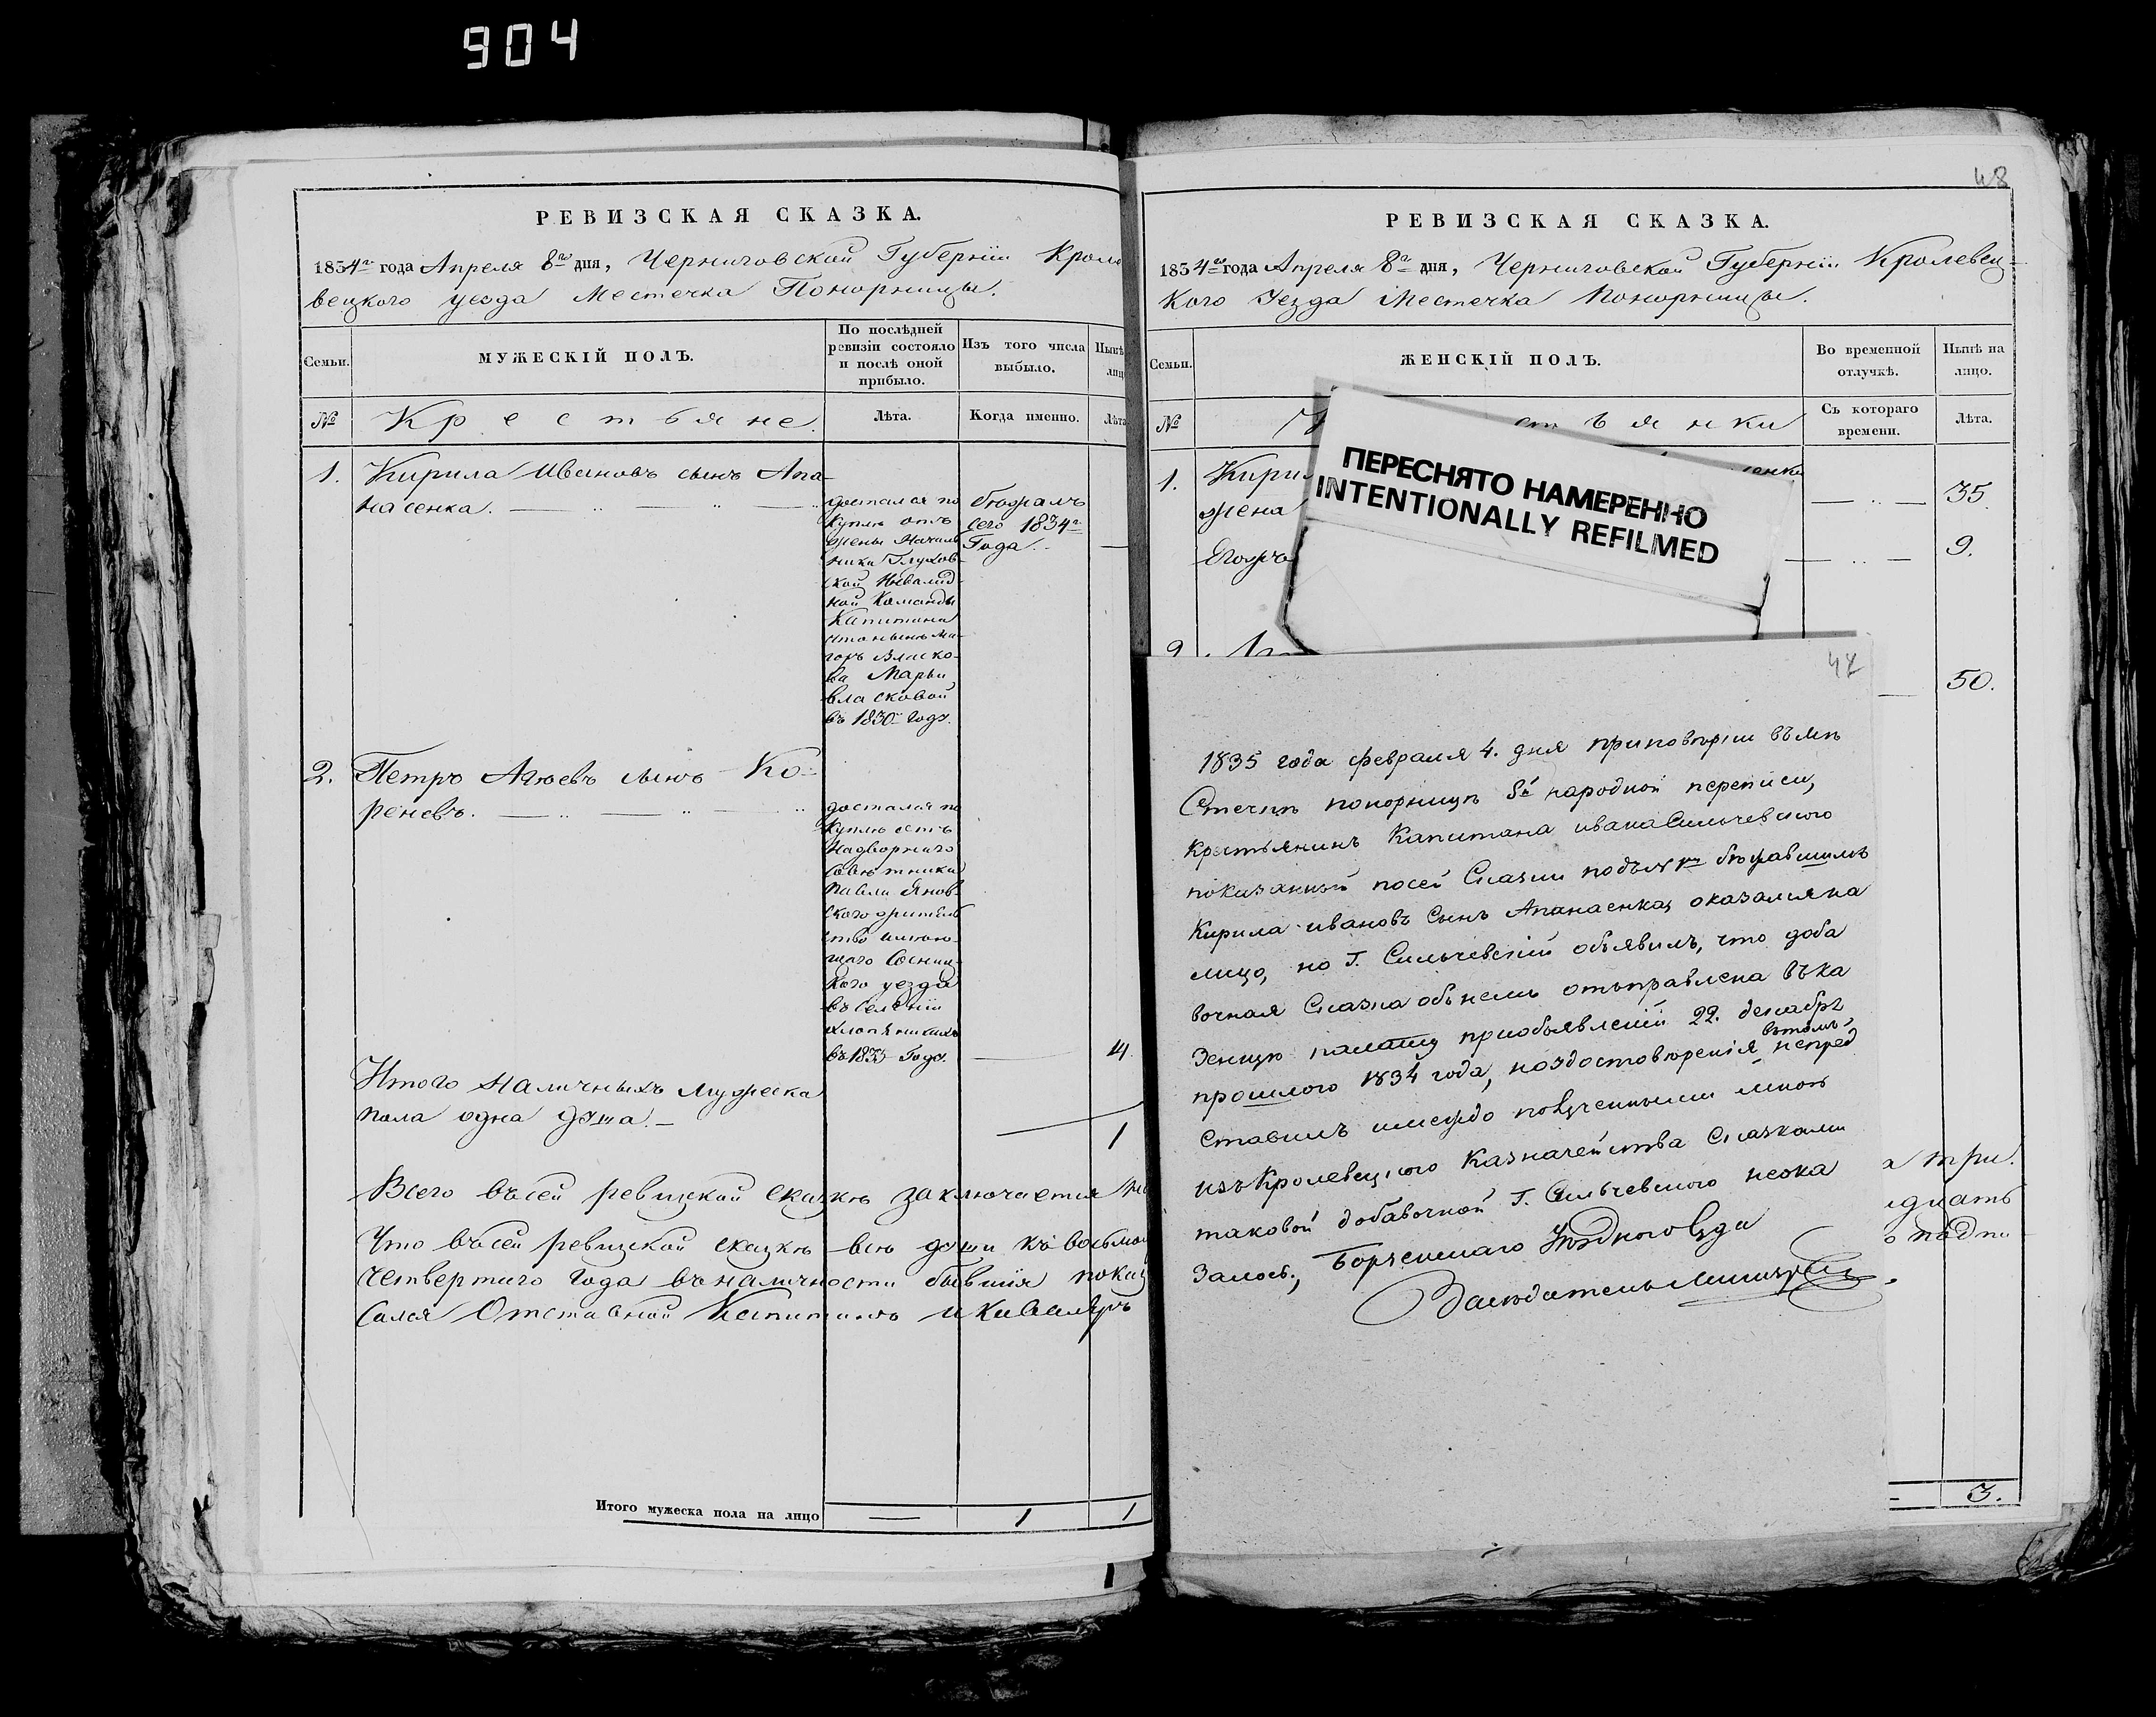 904
РЕВИЗСКАЯ СКАЗКА.
1834го года Апреля 8го дня, Черниговской Губерніи Кроле
вецкого уезда Местечка Понорницы.
Семьи.
МУЖЕСКІЙ ПОЛЪ.
По послѣдней
ревизіи состояло
и послѣ оной
прибыло.
Изъ того числа
выбыло.
Нынѣ
лиц
№
Крестьяне.
Лѣта.
Когда именно.
Лѣта
1. Кирила Ивановъ сынъ Апа-
насенка.
достался по
куплѣ отъ
жены Началь
ника Глухов-
ской Инвалид-
ной Команды
Капитана
что нынѣ Ма-
іоръ Власко-
ва Марьи
Власковой
въ 1830 году.
бежалъ
сего 1834го
Года
2. Петръ Агіевъ сынъ Ко-
реневъ.
достался по
куплѣ отъ
Надворного
Советника
Павла Янов-
ского
ство имею-
щаго Сосниц-
кого уезда
въ Селеніи
въ 1833 Году.
14
Итого наличныхъ мужеска
пола одна душа.
1
Всего въсей ревизской сказкѣ заключается
Что въсей ревизской сказкѣ все души къ восьмо
четвертаго года въналичности бывшія показ
сался Отставной Капитанъ и Кавалеръ
Итого мужеска пола на лицо
1
1
48
РЕВИЗСКАЯ СКАЗКА.
1834го года Апреля 8го дня, Черниговской Губерніи Кролевец-
кого Уезда Местечка Понорницы.
Семьи.
ЖЕНСКІЙ ПОЛЪ.
Во временной
отлучкѣ.
Нынѣ на
лицо.
№
стьянки
Съ котораго
времени.
Лѣта.
1. Кири
енки
жена
35
Егожъ
9.
ПЕРЕСНЯТО НАМЕРЕННО
INTENTIONALLY REFILMED
2.
50.
47
1835 года февраля 4. дня приповѣріи въмѣ
Стечкѣ понорницѣ 8й народной переписи,
Крестьянинъ Капитана ивана Сильчевского
показанный посей Сказки подъ № 1м бѣжавшимъ
Кирила ивановъ Сынъ Апанасенка, оказался на
лицо, но Г. Сильчевскій объявилъ, что доба
вочная Сказка объ немъ отъправлена въ ка
зенную палату приобъявленій 22. декабря
прошлого 1834 года, ноудостовѣренія вътомъ, непред
ставилъ имеждо полученными мною
изъ Кролевецкого Казначейства Сказками
таковой добавочной Г. Сильчевского неока
залось.,
Борзенскаго Уѣздного Суда
Засѣдатель
а три.
3.